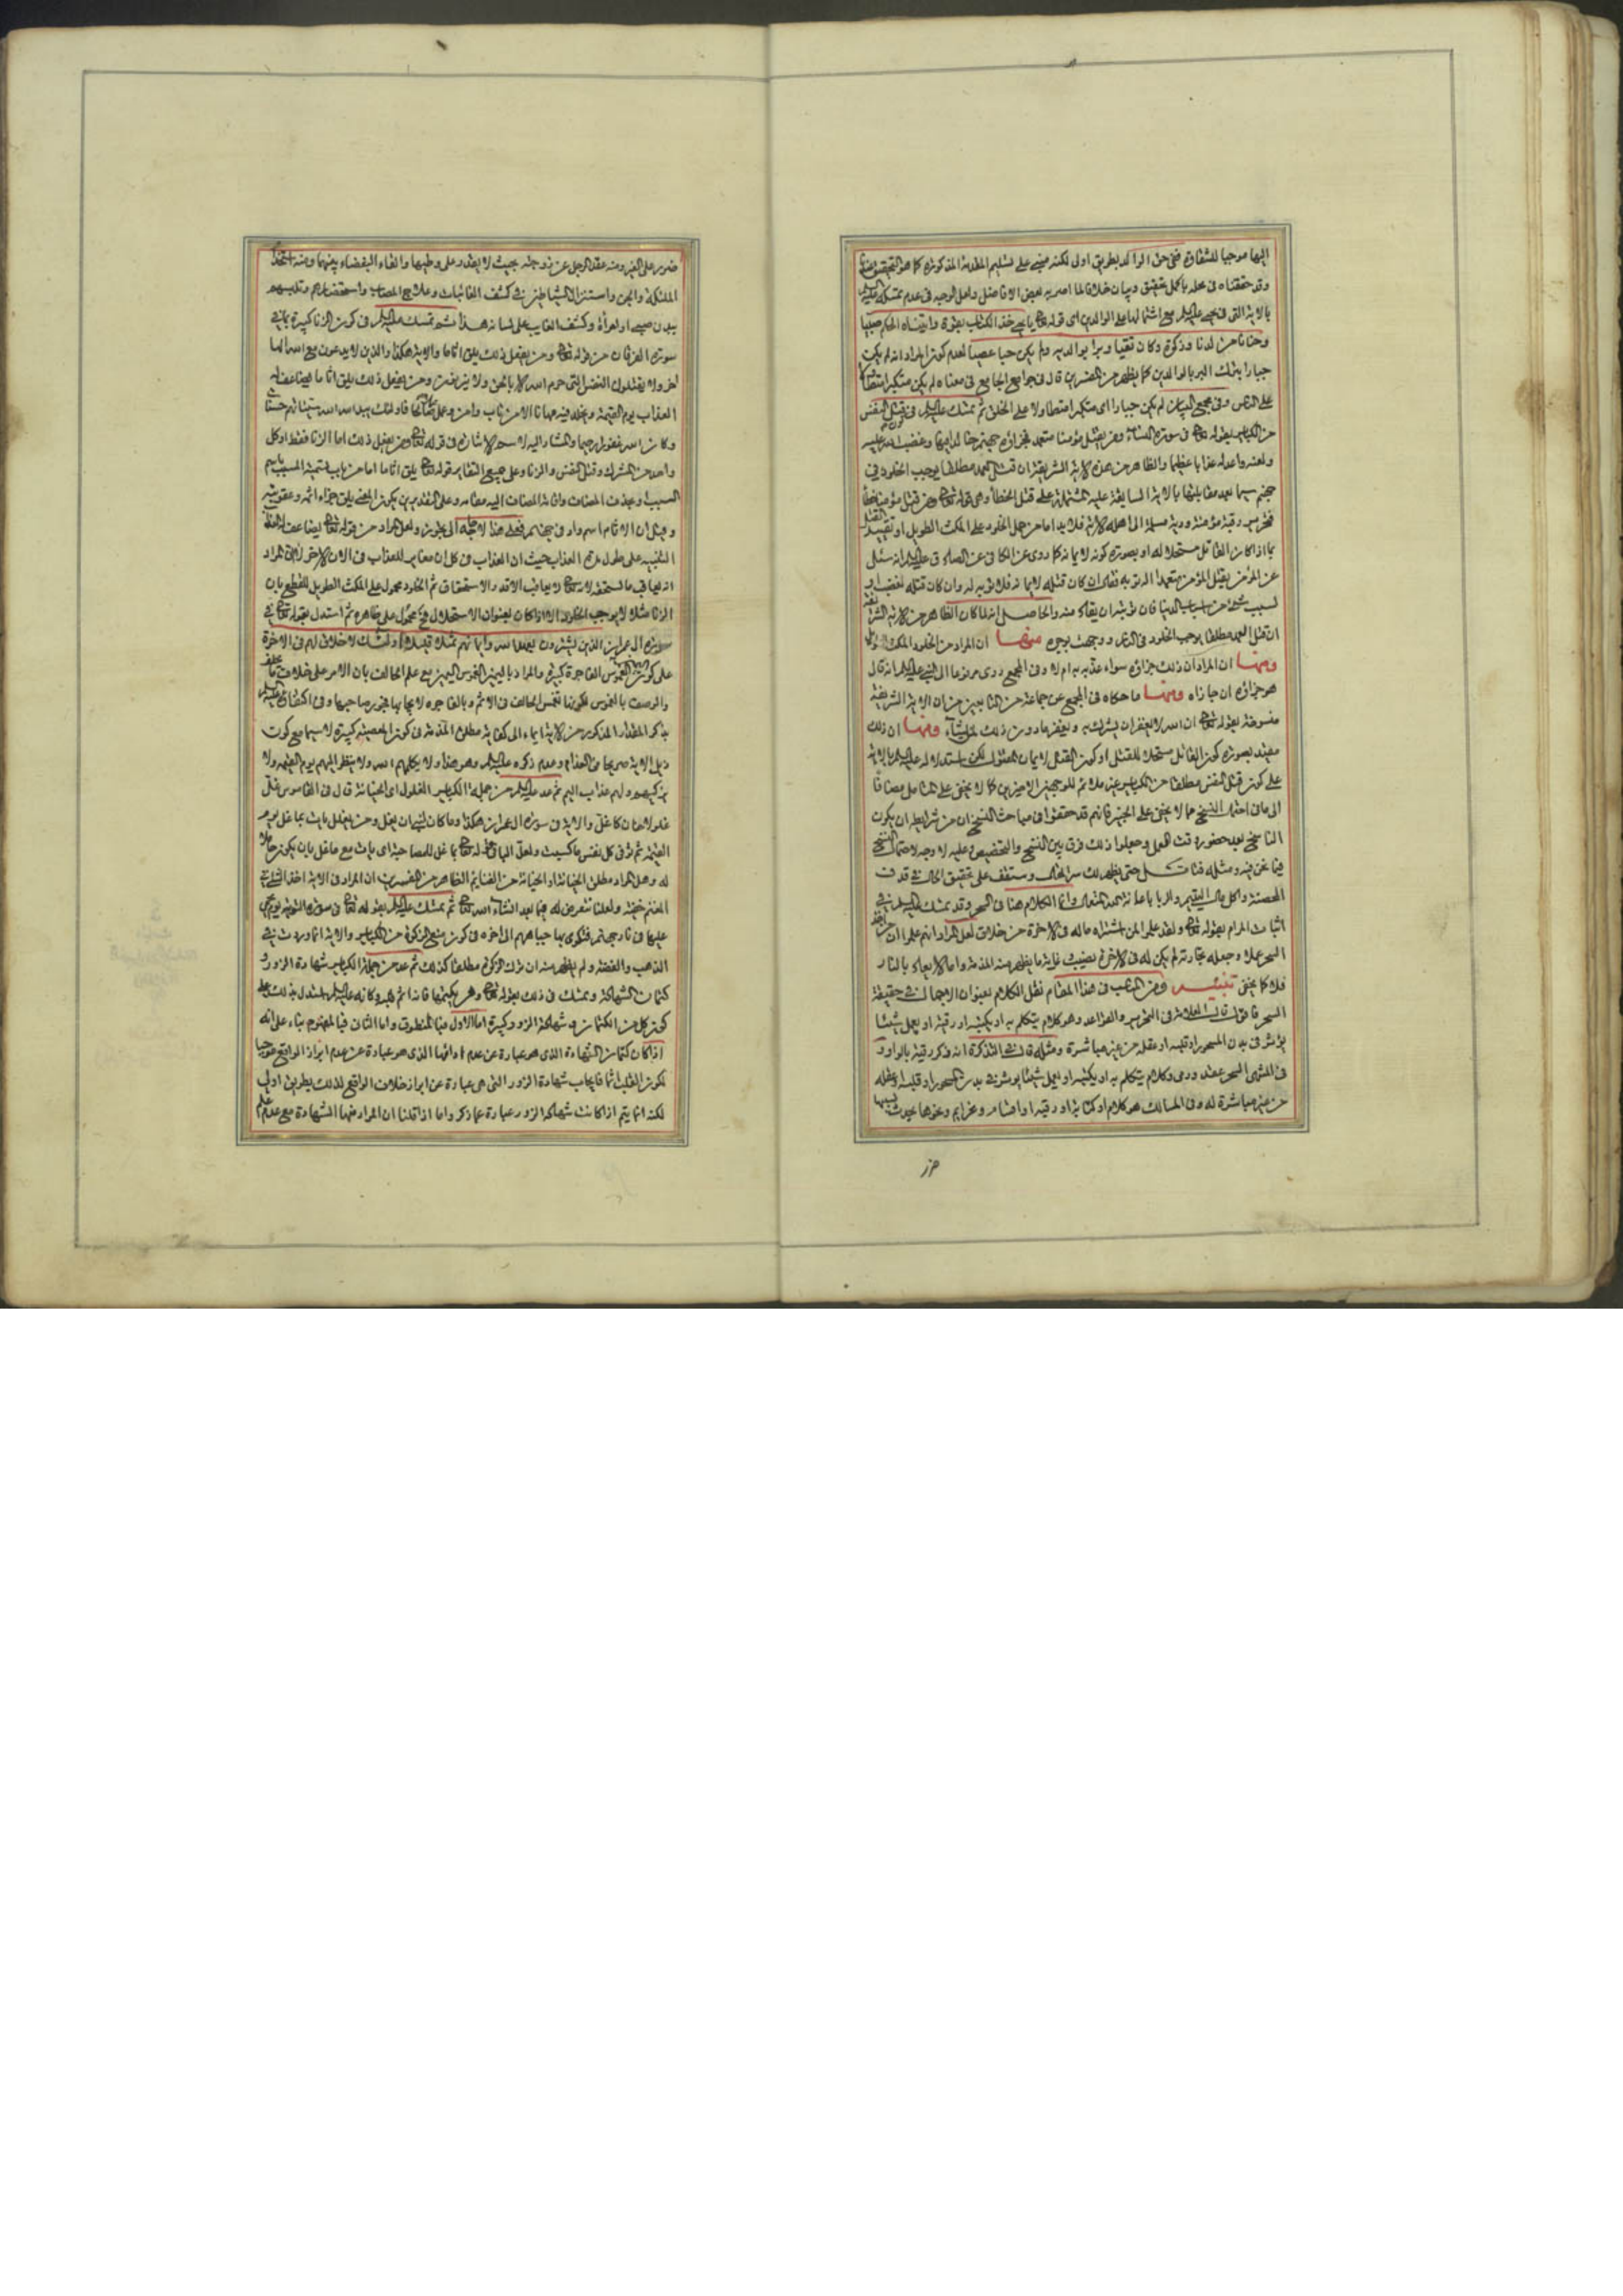 اليها موجبا للشقاوة ففي حق الوالد بطريق اولى لكنه مبني على تسليم المقدمة المذكورة كما هو التحقيق
وقد حققناه في محله باكمل تحقيق وبيان خلافا لما اصر به بعض الافاضل ولعل الوجه في عدم تمسكه عليه السلام
بالاية التي في يحيى عليه السلام مع اشتمالها على الوالدين اي قوله تعالى يا يحيى خذ الكتاب بقوة واتيناه الحكم صبيا
وحنانا من لدنا وزكوة وكان تقيا وبرا بوالديه ولم يكن جبارا عصيا لعدم كون المراد انه لم يكن
جبارا بترك البر بالوالدين كما يظهر من المفسرين قال في جوامع الجامع في معناه لم يكن متكبرا
على الناس وفي مجمع البيان لم يكن جبارا اي متكبرا متطاولا على الخلق ثم تمسك عليه السلام في قتل النفس
من الكباير بقوله تعالى في سورة النساء ومن يقتل مؤمنا متعمدا فجزاؤه جهنم خالدا فيها وغضب الله عليه
ولعنه واعد له عذابا عظيما والظاهر من هذه الاية الشريفة ان قتل العمد مطلقا يوجب الخلود في
جهنم سيما بعد مقابلتها بالاية السابقة عليه المشتملة على قتل الخطأ وهي قوله تعالى ومن قتل مؤمنا خطأ
فتحرير رقبة مؤمنة ودية مسلمة الى اهله الاية فلا بد اما من حمل الخلود على المكث الطويل او تقييد القتل
بما اذا كان القاتل مستحلا له او بصورة كونه لايمانه كما روى عن الكافي عن الصادق عليه السلام انه سئل
عن المؤمن يقتل المؤمن متعمدا اله توبة فقال ان كان قتله لايمانه فلا توبة له وان كان قتله لغضب او
لسبب شيء من اسباب الدنيا فان توبته ان يقاد منه والحاصل انه لما كان الظاهر من الاية الشريفة
ان قتل العمد مطلقا يوجب الخلود في النار ووجهت بوجوه منها ان المراد من الخلود المكث الطويل
ومنها ان المراد ان ذلك جزاؤه سواء عذبه به ام لا وفي المجمع روى مرفوعا الى النبي عليه السلام انه قال
هو جزاؤه ان جازاه ومنها ما حكاه في المجمع عن جماعة من التابعين من ان الاية الشريفة
منسوخة بقوله تعالى ان الله لا يغفر ان يشرك به ويغفر ما دون ذلك لمن يشاء ومنها ان ذلك
مقيد بصورة كون القاتل مستحلا للقتل او كون القتل لايمان المقتول لكن استدلاله عليه السلام بالاية
على كون قتل النفس مطلقا من الكباير غير ملائم للوجهين الاخيرين كما لا يخفى على المتامل مضافا
الى ما في احتمال النسخ مما لا يخفى على الخبير فانهم قد حققوا في مباحث النسخ ان من شرايطه ان يكون
الناسخ بعد حضور وقت العمل وجعلوا ذلك فرق بين النسخ والتخصيص وعليه لا وجه لاحتمال النسخ
فيما نحن فيه ومثله فتامل حتى يظهر لك سر الحال وستقف على تحقيق الحال في قذف
المحصنة واكل مال اليتيم والربا باعانة الله المتعال وانما الكلام هنا في السحر وقد تمسك عليه السلام في
اثبات المرام بقوله تعالى ولقد علموا لمن اشتراه ما له في الاخرة من خلاق لعل المراد انهم علموا ان من اخذ
السحر عملا وجعله تجارته لم يكن له في الاخرة نصيب غاية ما يظهر منه المذمة واما الايعاد بالنار
فلا كما لا يخفى تنبيه ومن المناسب في هذا المقام نقل الكلام بعنوان الاجمال في حقيقة
السحر فاقول قال العلامة في التحرير والقواعد وهو كلام يتكلم به او يكتبه او رقية او يعمل شيئا
يؤثر في بدن المسحور او قلبه او عقله من غير مباشرة ومثله قال في التذكرة انه ذكر رقية بالواو و
في المنتهى السحر عقد ورقى وكلام يتكلم به او يكتبه او يعمل شيئا يؤثر في بدن المسحور او قلبه او عقله
من غير مباشرة له وفي المسالك هو كلام او كتابة او رقية او اقسام وعزايم ونحوها يحدث بسببها
ضرر على الغير ومنه عقد الرجل عن زوجته بحيث لا يقدر على وطيها والقاء البغضاء بينهما ومنه استخدام
الملئكة والجن واستنزال الشياطين في كشف الغائبات وعلاج المصاب واستحضارهم وتلبسهم
ببدن صبي او امرأة وكشف الغايب على لسانه هذا ثم تمسك عليه السلام في كون الزنا كبيرة بما في
سورة الفرقان من قوله تعالى ومن يفعل ذلك يلق اثاما والاية هكذا والذين لا يدعون مع الله الها
اخر ولا يقتلون النفس التي حرم الله الا بالحق ولا يزنون ومن يفعل ذلك يلق اثاما يضاعف له
العذاب يوم القيمة ويخلد فيه مهانا الا من تاب وامن وعمل صالحا فاولئك يبدل الله سيئاتهم حسنات
وكان الله غفورا رحيما والمشار اليه لاسم الاشارة في قوله تعالى ومن يفعل ذلك اما الزنا فقط او كل
واحد من الشرك وقتل النفس والزنا وعلى جميع التقادير قوله تعالى يلق اثاما اما من باب تسمية المسبب باسم
السبب او بحذف المضاف واقامة المضاف اليه مقامه وعلى التقديرين يكون المعنى يلق جزاء اثمه وعقوبته
وقيل ان الاثام اسم واد في جهنم فعلى هذا لا حاجة الى تجوز ولعل المراد من قوله تعالى يضاعف له العذاب
التنبيه على طول مدة العذاب حيث ان العذاب في كل ان مغاير للعذاب في الان الاخر لا ان المراد
انه يعاقب ما لا يستحقه لانه تعالى لا يعاقب الا قدر الاستحقاق ثم الخلود محمول على المكث الطويل للقطع بان
الزنا مثلا لا يوجب الخلود الا اذا كان بعنوان الاستحلال فح محمول على ظاهره ثم استدل بقوله تعالى في
سورة ال عمران الذين يشترون بعهد الله وايمانهم ثمنا قليلا اولئك لا خلاق لهم في الاخرة
على كون اليمين الغموس الفاجرة كبيرة والمراد باليمين الغموس اليمين مع علم الحالف بان الامر على خلاف ما حلف
والوصف بالغموس لكونها تغمس الحالف في الاثم وبالفاجرة لايجابها فجور صاحبها وفي اكتفائه عليه السلام
بذكر المقدار المذكور من الاية ايماء الى كفاية مطلق المذمة في كون المعصية كبيرة لا سيما مع كون
ذيل الاية صريحا في العذاب وعدم ذكره عليه السلام وهو هذا ولا يكلمهم الله ولا ينظر اليهم يوم القيمة ولا
يزكيهم ولهم عذاب اليم ثم عد عليه السلام من جملة الكباير الغلول اي الخيانة قال في القاموس غل
غلولا خان كاغل والاية في سورة ال عمران هكذا وما كان لنبي ان يغل ومن يغلل يات بما غل يوم
القيمة ثم توفى كل نفس ما كسبت ولعل الباء في قوله تعالى بما غل للمصاحبة اي يات مع ما غل بان يكون حاملا
له وهل المراد مطلق الخيانة او الخيانة من الغنايم الظاهر من المفسرين ان المراد في الاية اخذ الشيء من
المغنم خفية ولعلنا نتعرض له فيما بعد انشاء الله تعالى ثم تمسك عليه السلام بقوله تعالى في سورة التوبة يوم يحمى
عليها في نار جهنم فتكوى بها جباههم الى اخره في كون منع الزكوة من الكباير والاية انما وردت في
الذهب والفضة ولم يظهر منه ان ترك الزكوة مطلقا كذلك ثم عد من جملة الكباير شهادة الزور و
كتمان الشهادة وتمسك في ذلك بقوله تعالى ومن يكتمها فانه اثم قلبه وكانه عليه السلام استدل بذلك على
كون كل من الكتمان وشهادة الزور كبيرة اما الاول فبالمنطوق واما الثاني فبالمفهوم بناء على انه
اذا كان كتمان الشهادة الذي هو عبارة عن عدم ادائها الذي هو عبارة عن عدم ابراز الواقع موجبا
لكون القلب اثما فايجاب شهادة الزور التي هي عبارة عن ابراز خلاف الواقع لذلك بطريق اولى
لكنه انما يتم اذا كانت شهادة الزور عبارة عما ذكر واما اذا قلنا ان المراد منها الشهادة مع عدم علم
ضرر